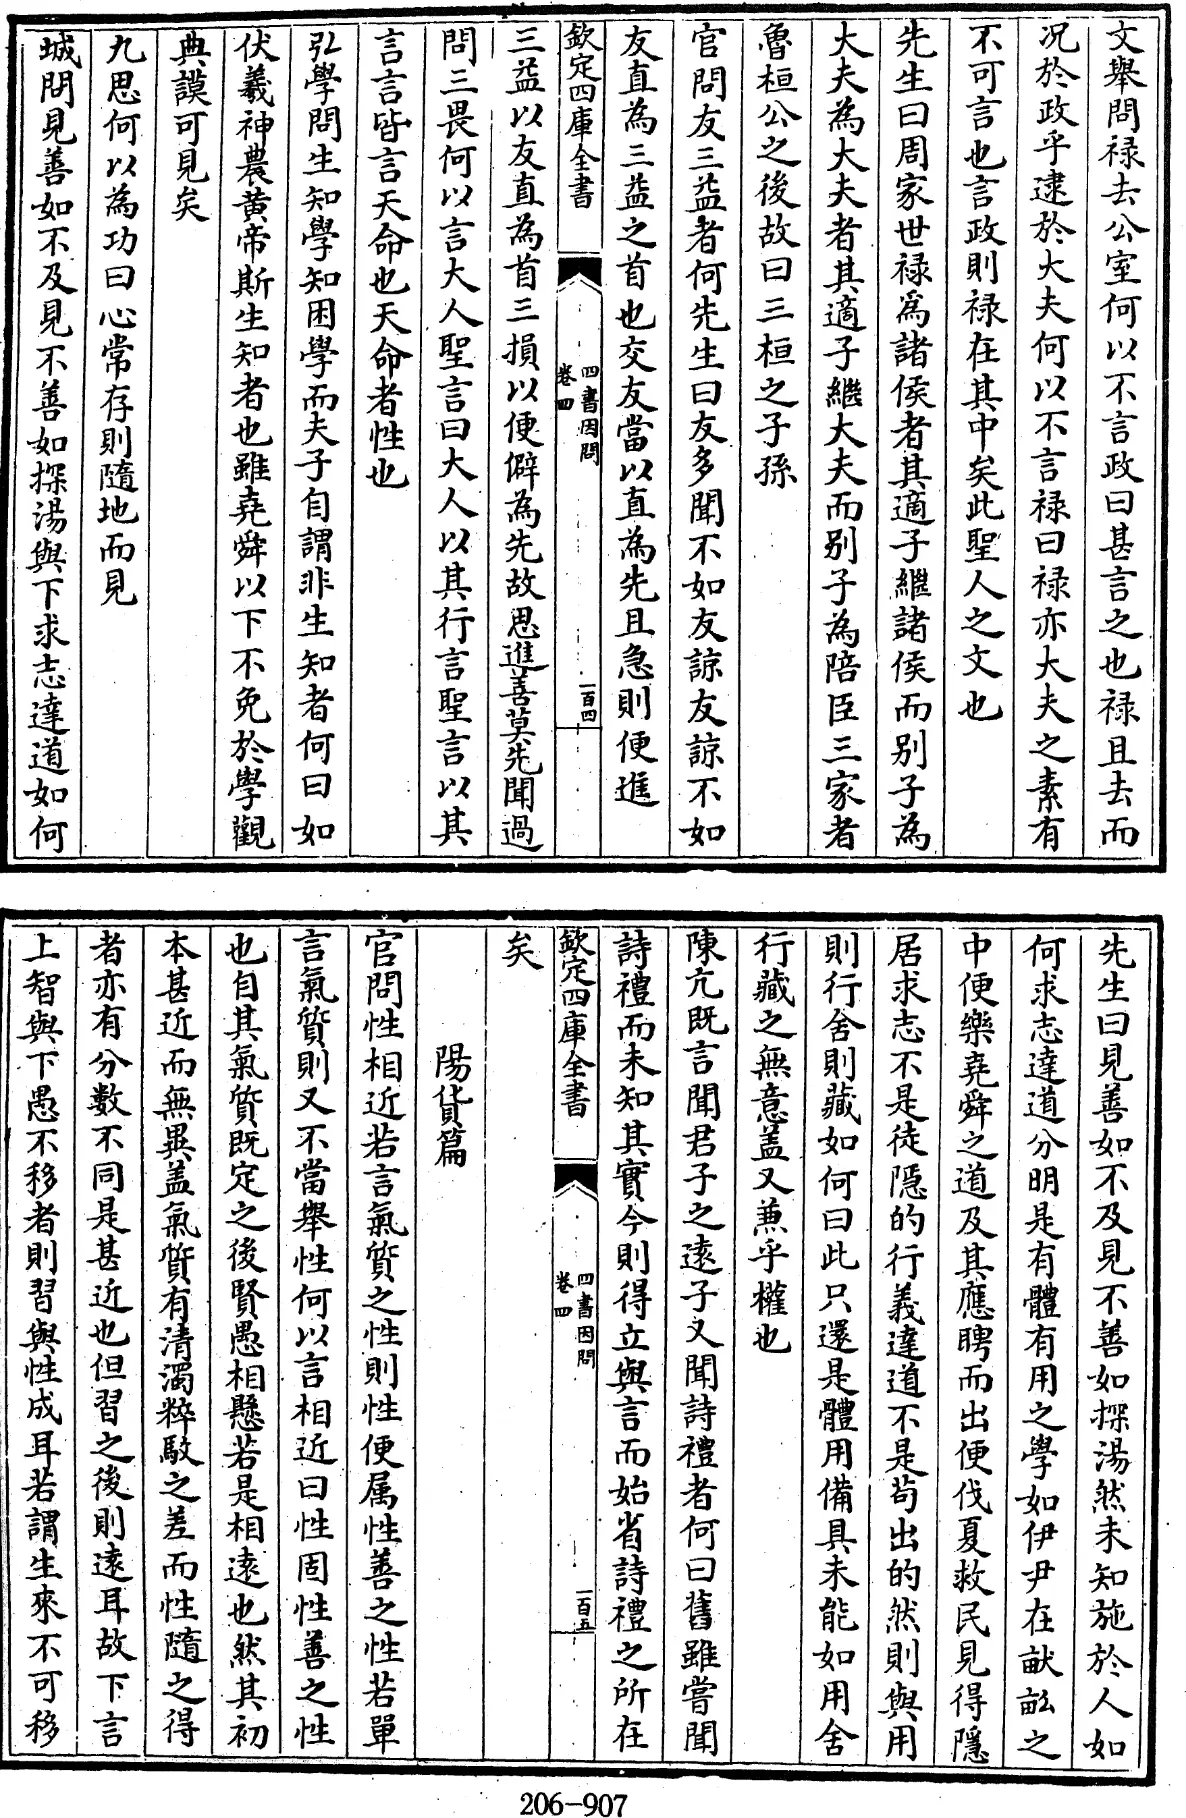 文舉問禄去公室何以不言政曰甚言之也禄且去而
况於政乎逮於大夫何以不言禄曰禄亦大夫之素有
不可言也言政則禄在其中矣此聖人之文也
先生曰周家世禄為諸侯者其適子繼諸侯而别子為
大夫為大夫者其適子繼大夫而别子為陪臣三家者
魯桓公之後故曰三桓之子孫
官問友三益者何先生曰友多聞不如友諒友諒不如
友直為三益之首也交友當以直為先且急則便進
欽定四庫全書
四書因問
卷四
一百四
三益以友直為首三損以便僻為先故思進善莫先聞過
問三畏何以言大人聖言曰大人以其行言聖言以其
言言皆言天命也天命者性也
弘學問生知學知困學而夫子自謂非生知者何曰如
伏羲神農黄帝斯生知者也雖堯舜以下不免於學觀
典謨可見矣
九思何以為功曰心常存則隨地而見
城問見善如不及見不善如探湯與下求志達道如何
先生曰見善如不及見不善如探湯然未知施於人如
何求志達道分明是有體有用之學如伊尹在畎畝之
中便樂堯舜之道及其應聘而出便伐夏救民見得隱
居求志不是徒隱的行義達道不是苟出的然則與用
則行舍則藏如何曰此只還是體用備具未能如用舍
行藏之無意盖又兼乎權也
陳亢既言聞君子之逺子又聞詩禮者何曰舊雖嘗聞
詩禮而未知其實今則得立與言而始省詩禮之所在
欽定四庫全書
四書因問
卷四
一百五
矣
陽貨篇
官問性相近若言氣質之性則性便属性善之性若單
言氣質則又不當舉性何以言相近曰性固性善之性
也自其氣質既定之後賢愚相懸若是相逺也然其初
本甚近而無異盖氣質有清濁粹駁之差而性隨之得
者亦有分數不同是甚近也但習之後則逺耳故下言
上智與下愚不移者則習與性成耳若謂生來不可移
206-907